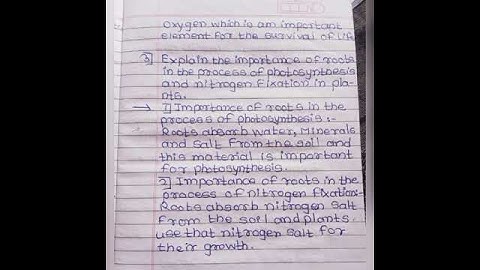 oxygen which is am important
element for the survival of life
3) Explain the importance of roots
in the process of photosynthesis
and nitrogen fixation in pla-
nts.
→ 1] Importance of roots in the
process of photosynthesis :-
Roots absorb water, Minerals
and salt from the soil and
this material is important
for photosynthesis.
2] Importance of roots in the
process of nitrogen fixation:-
Roots absorb nitrogen salt
from the soil and plants
use that nitrogen salt for
their growth.